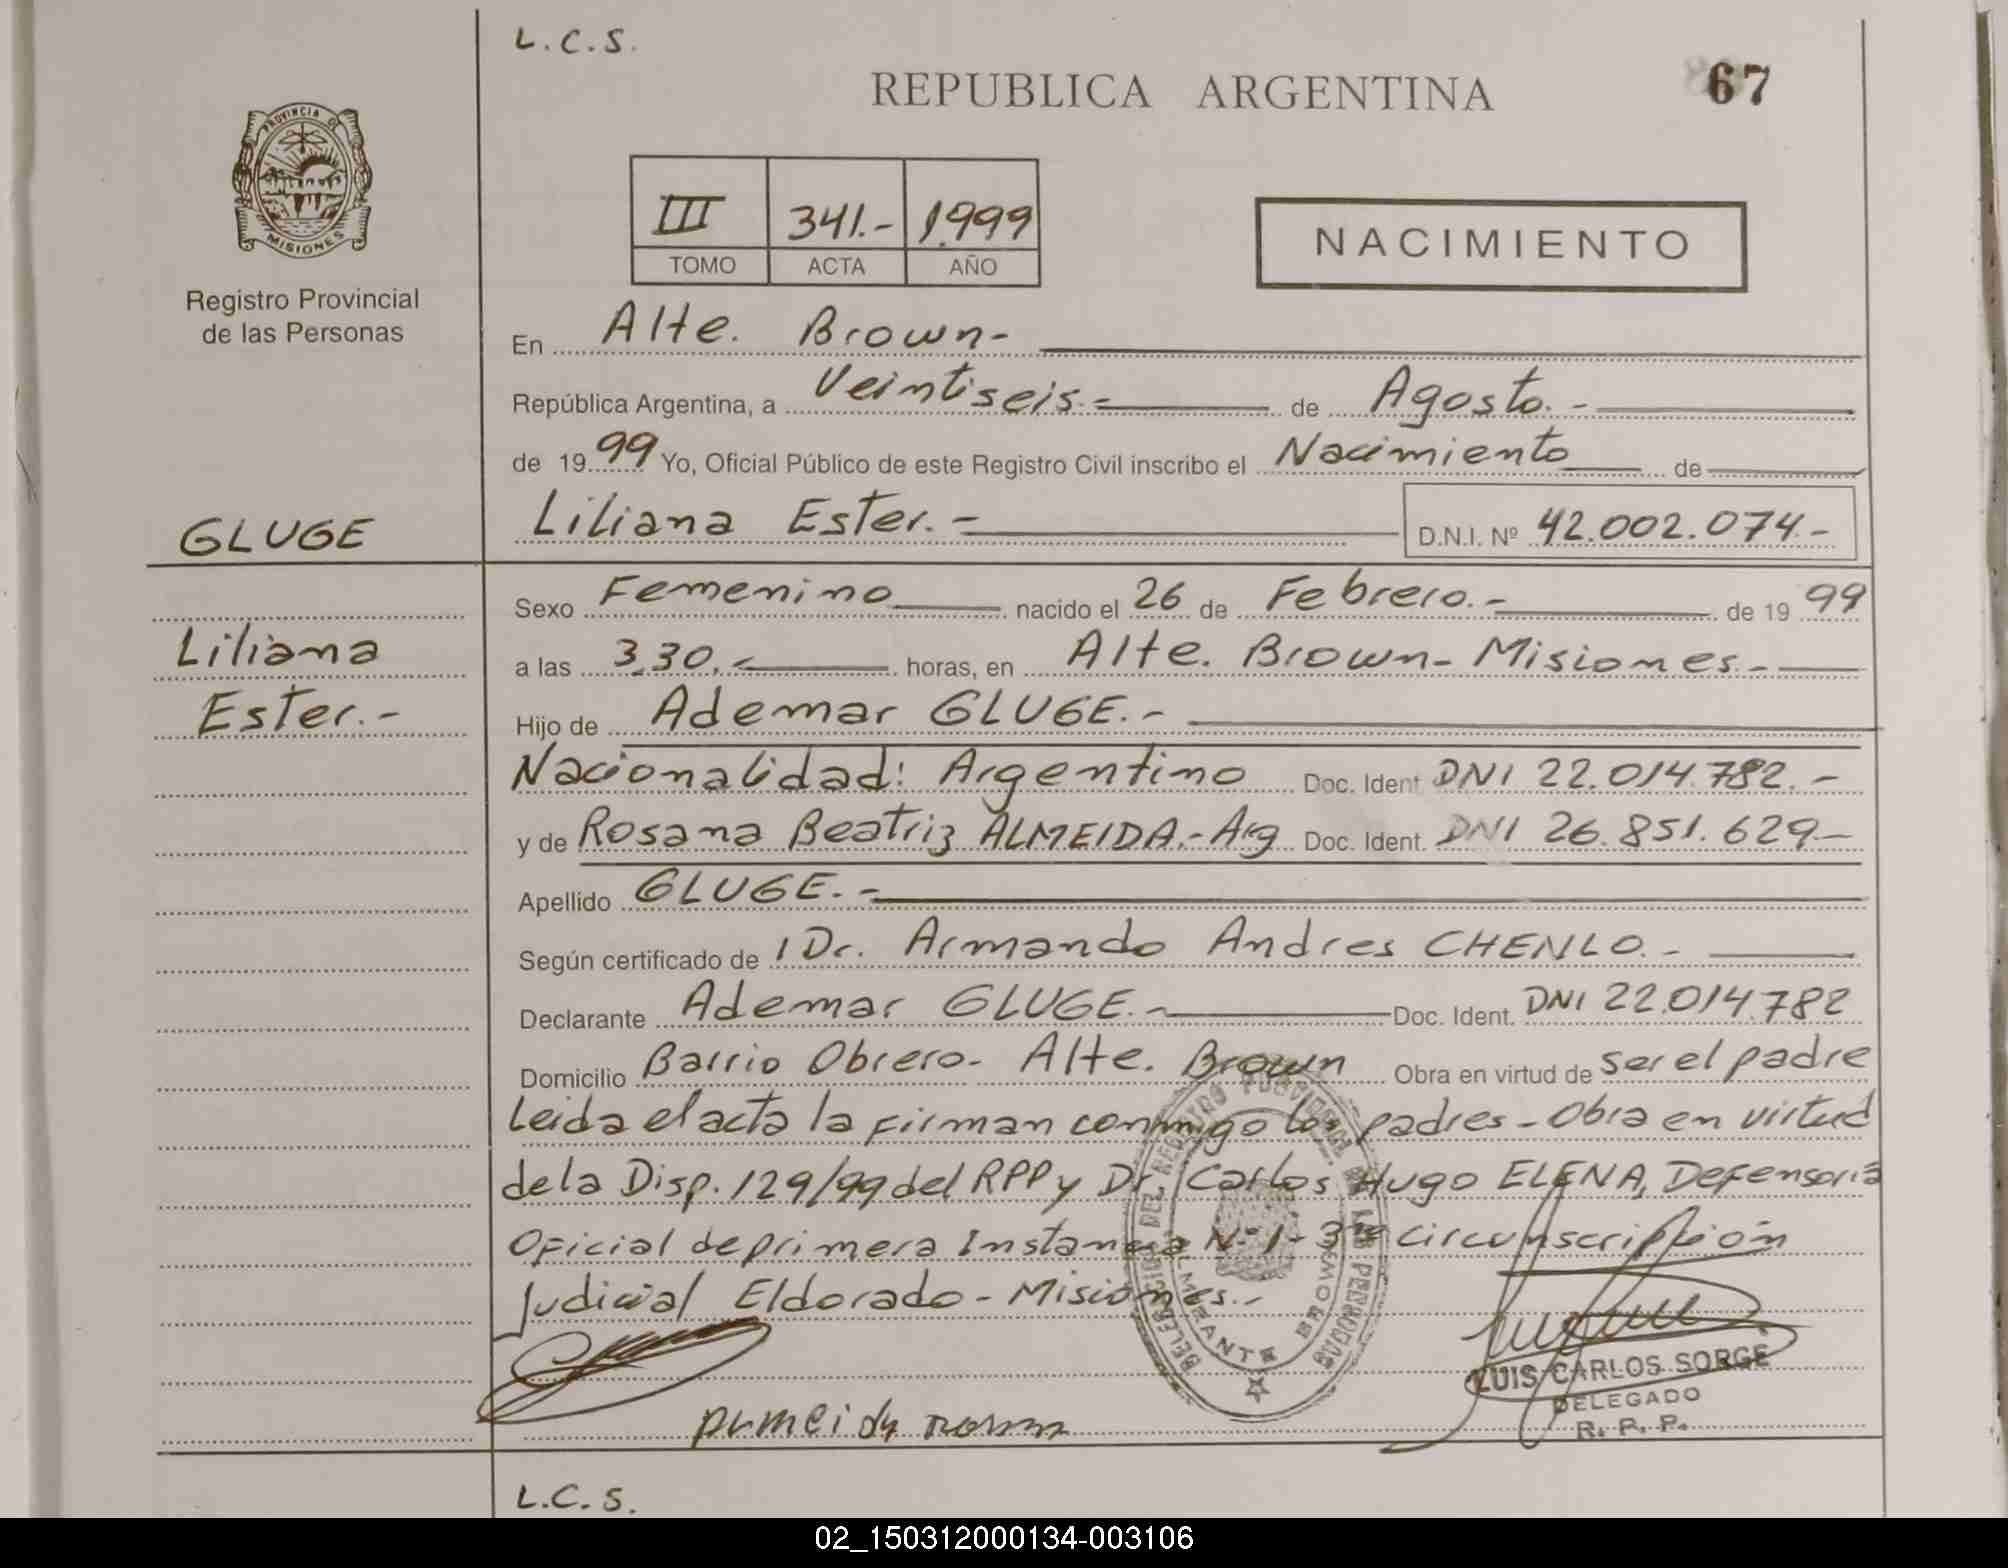 L.C.S.
REPUBLICA ARGENTINA
67
PROVINCIA DE
MISIONES
Registro Provincial
de las Personas
III 341.- 1.999
TOMO ACTA AÑO
NACIMIENTO
En Alte. Brown-
República Argentina, a Veintiseis.- de Agosto.-
de 19 99 Yo, Oficial Público de este Registro Civil inscribo el Nacimiento de
GLUGE
Liliana Ester.- D.N.I. Nº 42.002.074.-
Liliana
Ester.-
Sexo Femenino nacido el 26 de Febrero.- de 19 99
a las 3,30.- horas, en Alte. Brown- Misiones.-
Hijo de Ademar GLUGE.-
Nacionalidad: Argentino Doc. Ident DNI 22.014.782.-
y de Rosana Beatriz ALMEIDA.- Arg Doc. Ident. DNI 26.851.629-
Apellido GLUGE.-
Según certificado de 1 Dr. Armando Andres CHENLO.-
Declarante Ademar GLUGE.- Doc. Ident. DNI 22.014.782
Domicilio Barrio Obrero- Alte. Brown Obra en virtud de ser el padre
Leida el acta la firman conmigo los padres - Obra en virtud
de la Disp. 129/99 del RPP y Dr. Carlos Hugo ELENA, Defensoria
Oficial de primera Instancia Nº 1 - 3ra circunscripción
Judicial Eldorado - Misiones.-
DELEGACION DEL REGISTRO PROVINCIAL DE LAS PERSONAS
ALMIRANTE BROWN
LUIS CARLOS SORGE
DELEGADO
R. P. P.
L.C.S.
02_150312000134-003106